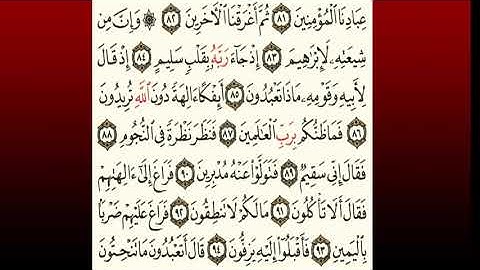 عِبَادِنَا الْمُؤْمِنِينَ ٨١ ثُمَّ أَغْرَقْنَا الْآخَرِينَ ٨٢ ۞ وَإِنَّ مِن
شِيعَتِهِ لَإِبْرَاهِيمَ ٨٣ إِذْ جَاءَ رَبَّهُ بِقَلْبٍ سَلِيمٍ ٨٤ إِذْ قَالَ
لِأَبِيهِ وَقَوْمِهِ مَاذَا تَعْبُدُونَ ٨٥ أَئِفْكًا آلِهَةً دُونَ اللَّهِ تُرِيدُونَ
٨٦ فَمَا ظَنُّكُم بِرَبِّ الْعَالَمِينَ ٨٧ فَنَظَرَ نَظْرَةً فِي النُّجُومِ ٨٨
فَقَالَ إِنِّي سَقِيمٌ ٨٩ فَتَوَلَّوْا عَنْهُ مُدْبِرِينَ ٩٠ فَرَاغَ إِلَىٰ آلِهَتِهِمْ
فَقَالَ أَلَا تَأْكُلُونَ ٩١ مَا لَكُمْ لَا تَنطِقُونَ ٩٢ فَرَاغَ عَلَيْهِمْ ضَرْبًا
بِالْيَمِينِ ٩٣ فَأَقْبَلُوا إِلَيْهِ يَزِفُّونَ ٩٤ قَالَ أَتَعْبُدُونَ مَا تَنْحِتُونَ